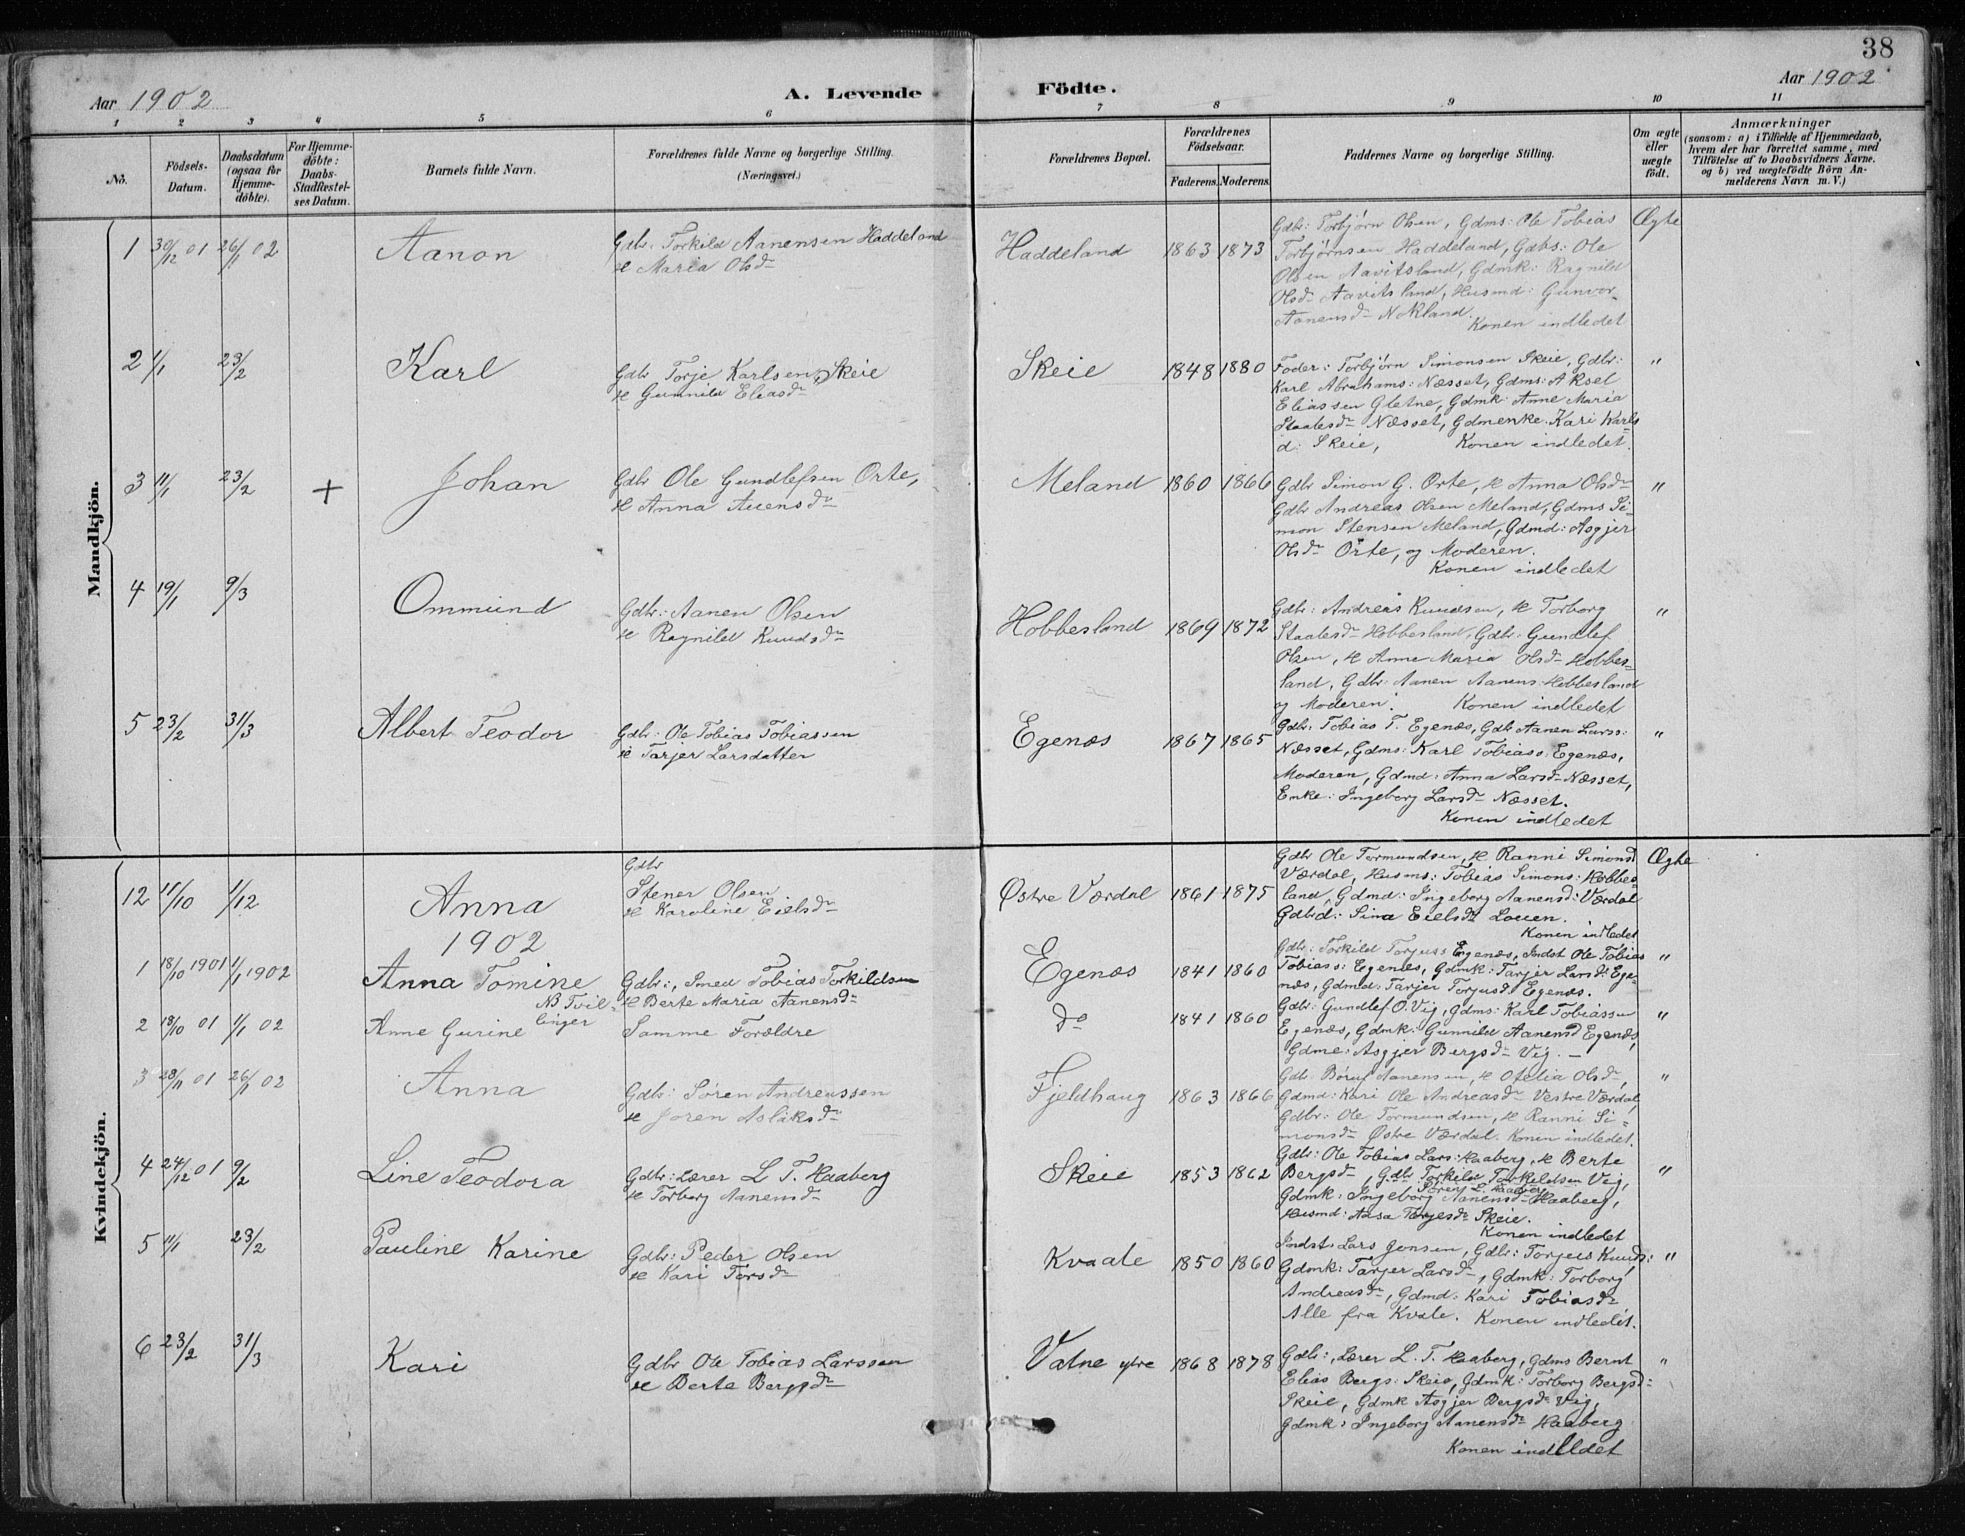 38
Aar 1902
A. Levende Födte.
Aar 1902
1 2 3 4 5 6 7 8 9 10 11
No.
Födsels-Datum.
Daabsdatum (ogsaa for Hjemme-döbte).
For Hjemme-döbte: Daabs-Stadfæstel-ses Datum.
Barnets fulde Navn.
Forældrenes fulde Navne og borgerlige Stilling.
(Næringsvei.)
Forældrenes Bopæl.
Forældrenes Födselsaar.
Faderens. Moderens.
Faddernes Navne og borgerlige Stilling.
Om ægte eller uægte födt.
Anmærkninger
(saasom: a) i Tilfælde af Hjemmedaab, hvem der har forrettet samme, med Tilföielse af to Daabsvidners Navne. og b) ved uægtefödte Börn Anmelderens Navn m. V.)
Mandkjön.
1 30/12 01 26/1 02 Aanon
Gdbr: Torkild Aanensen Haddeland
& Maria Olsdr
Haddeland 1863 1873
Gdbr: Torbjörn Olsen, Gdms: Ole Tobias
Torbjörnsen Haddeland, Gdbs: Ole
Olsen Aavitsland, Gdmk: Ragnild
Olsdr Aavitsland, Husmd: Gunvor
Aanensdr Nokland.
Konen indledet
Ægte
2 1/1 23/2 Karl
Gdbr Torje Karlsen Skeie
& Gunnild Eliasdr
Skeie 1848 1880
Foder: Torbjörn Simonsen Skeie, Gdbr:
Karl Abrahams: Næsset, Gdms: Aksel
Eliassen Gletne, Gdmk: Anne Maria
Staalesdr Næsset, Gdmenke: Kari Karls
d: Skeie, Konen indledet.
"
3 11/1 23/2 + Johan
Gdbr Ole Gundlefsen Orte,
& Anna Auensdr
Meland 1860 1866
Gdbr Simon G. Orte, & Anna Olsdr
Gdbr Andreas Olsen Meland, Gdms Si-
mon Stensen Meland, Gdmd: Asgjer
Olsdr Orte, og Moderen.
Konen indledet
"
4 19/1 9/3 Ommund
Gdbr: Aanen Olsen
& Ragnild Knudsdr
Hobbesland 1869 1872
Gdbr: Andreas Knudsen, & Torborg
Staalesdr Hobbesland, Gdbr: Gundlef
Olsen, & Anne Maria Olsdr Hobbes-
land, Gdbr: Aanen Aanens: Hobbesland
og Moderen. Konen indledet
"
5 23/2 31/3 Albert Teodor
Gdbr: Ole Tobias Tobiassen
& Tarjer Larsdatter
Egenæs 1867 1865
Gdbr: Tobias T. Egenæs, Gdb Aanen Larss:
Næsset, Gdms: Karl Tobiass: Egenæs,
Moderen, Gdmd: Anna Larsdr Næsset,
Enke: Ingeborg Larsdr Næsset.
Konen indledet
"
Kvindekjön.
12 11/10 1/12 Anna
Gdbr
Stener Olsen
& Karoline Eielsdr
Østre Værdal 1861 1875
Gdbr Ole Tormundsen, & Ranni Simonsd
Værdal, Husms: Tobias Simons: Hobbes-
land, Gdmd: Ingeborg Aanensd: Værdal
Gdbrd: Sina Eielsdr Louen.
Konen indledet
Ægte
1902
1 18/10 1901 1/1 1902 Anna Tomine
NB Tvil-
linger
Gdbr:, Smed Tobias Torkildsen
& Berte Maria Aanensdr
Egenæs 1841 1860
Gdbr: Torkild Torjuss Egenæs, Indst Ole Tobias
Tobiass: Egenæs, Gdmk: Tarjer Larsdr Ege-
næs, Gdmd: Tarjer Torjusd: Egenæs.
"
2 18/10 01 1/1 02 Anne Gurine
Samme Forældre
do 1841 1860
Gdbr: Gundlef O. Vig, Gdms: Karl Tobiassen
Egenæs, Gdmk: Gunnild Aanensd Egenæs,
Gdme: Asgjer Bergsdr Vig. —
"
3 28/11 01 26/1 02 Anna
Gdbr: Søren Andreassen
& Joren Aslaksdr
Fjeldhaug 1863 1866
Gdbr Børuf Aanensen, & Ofelia Olsdr,
Gdmd: Kari Ole Andreasdr Vestre Værdal,
Gdbr: Ole Tormundsen, & Ranni Si-
monsdr Østre Værdal. Konen indledet.
"
4 24/12 01 9/2 Line Teodora
Gdbr: Lærer L T. Haaberg
& Torborg Aanensdr
Skeie 1853 1862
Gdbr: Ole Tobias Lars: Haaberg, & Berte
Bergsdr, Gdbr Torkild Torkildsen Vig,
Gdmk: Ingeborg Aanensdr Haaberg,
Husmd: Aasa Torjesdr Skeie.
Konen indledet
"
5 11/1 23/2 Pauline Karine
Gdbr: Peder Olsen
& Kari Torsdr
Kvaale 1850 1860
Indst: Lars Jensen, Gdbr: Torjeis Knuds:
Gdmk: Tarjer Larsdr, Gdmk: Torborg
Andreasdr, Gdmd: Kari Tobiasdr
Alle fra Kvale. Konen indledet.
"
6 23/2 31/3 Kari
Gdbr Ole Tobias Larssen
& Berte Bergsdr
Vatne ytre 1868 1878
Gdbr:, Lærer L. T. Haaberg, Gdms Bernt
Elias Bergs: Skeie, Gdmk: Torborg Bergsd:
Skeie, Gdmk Asgjer Bergsdr Vig,
Gdmk: Ingeborg Aanensdr Haaberg
Konen indledet
"